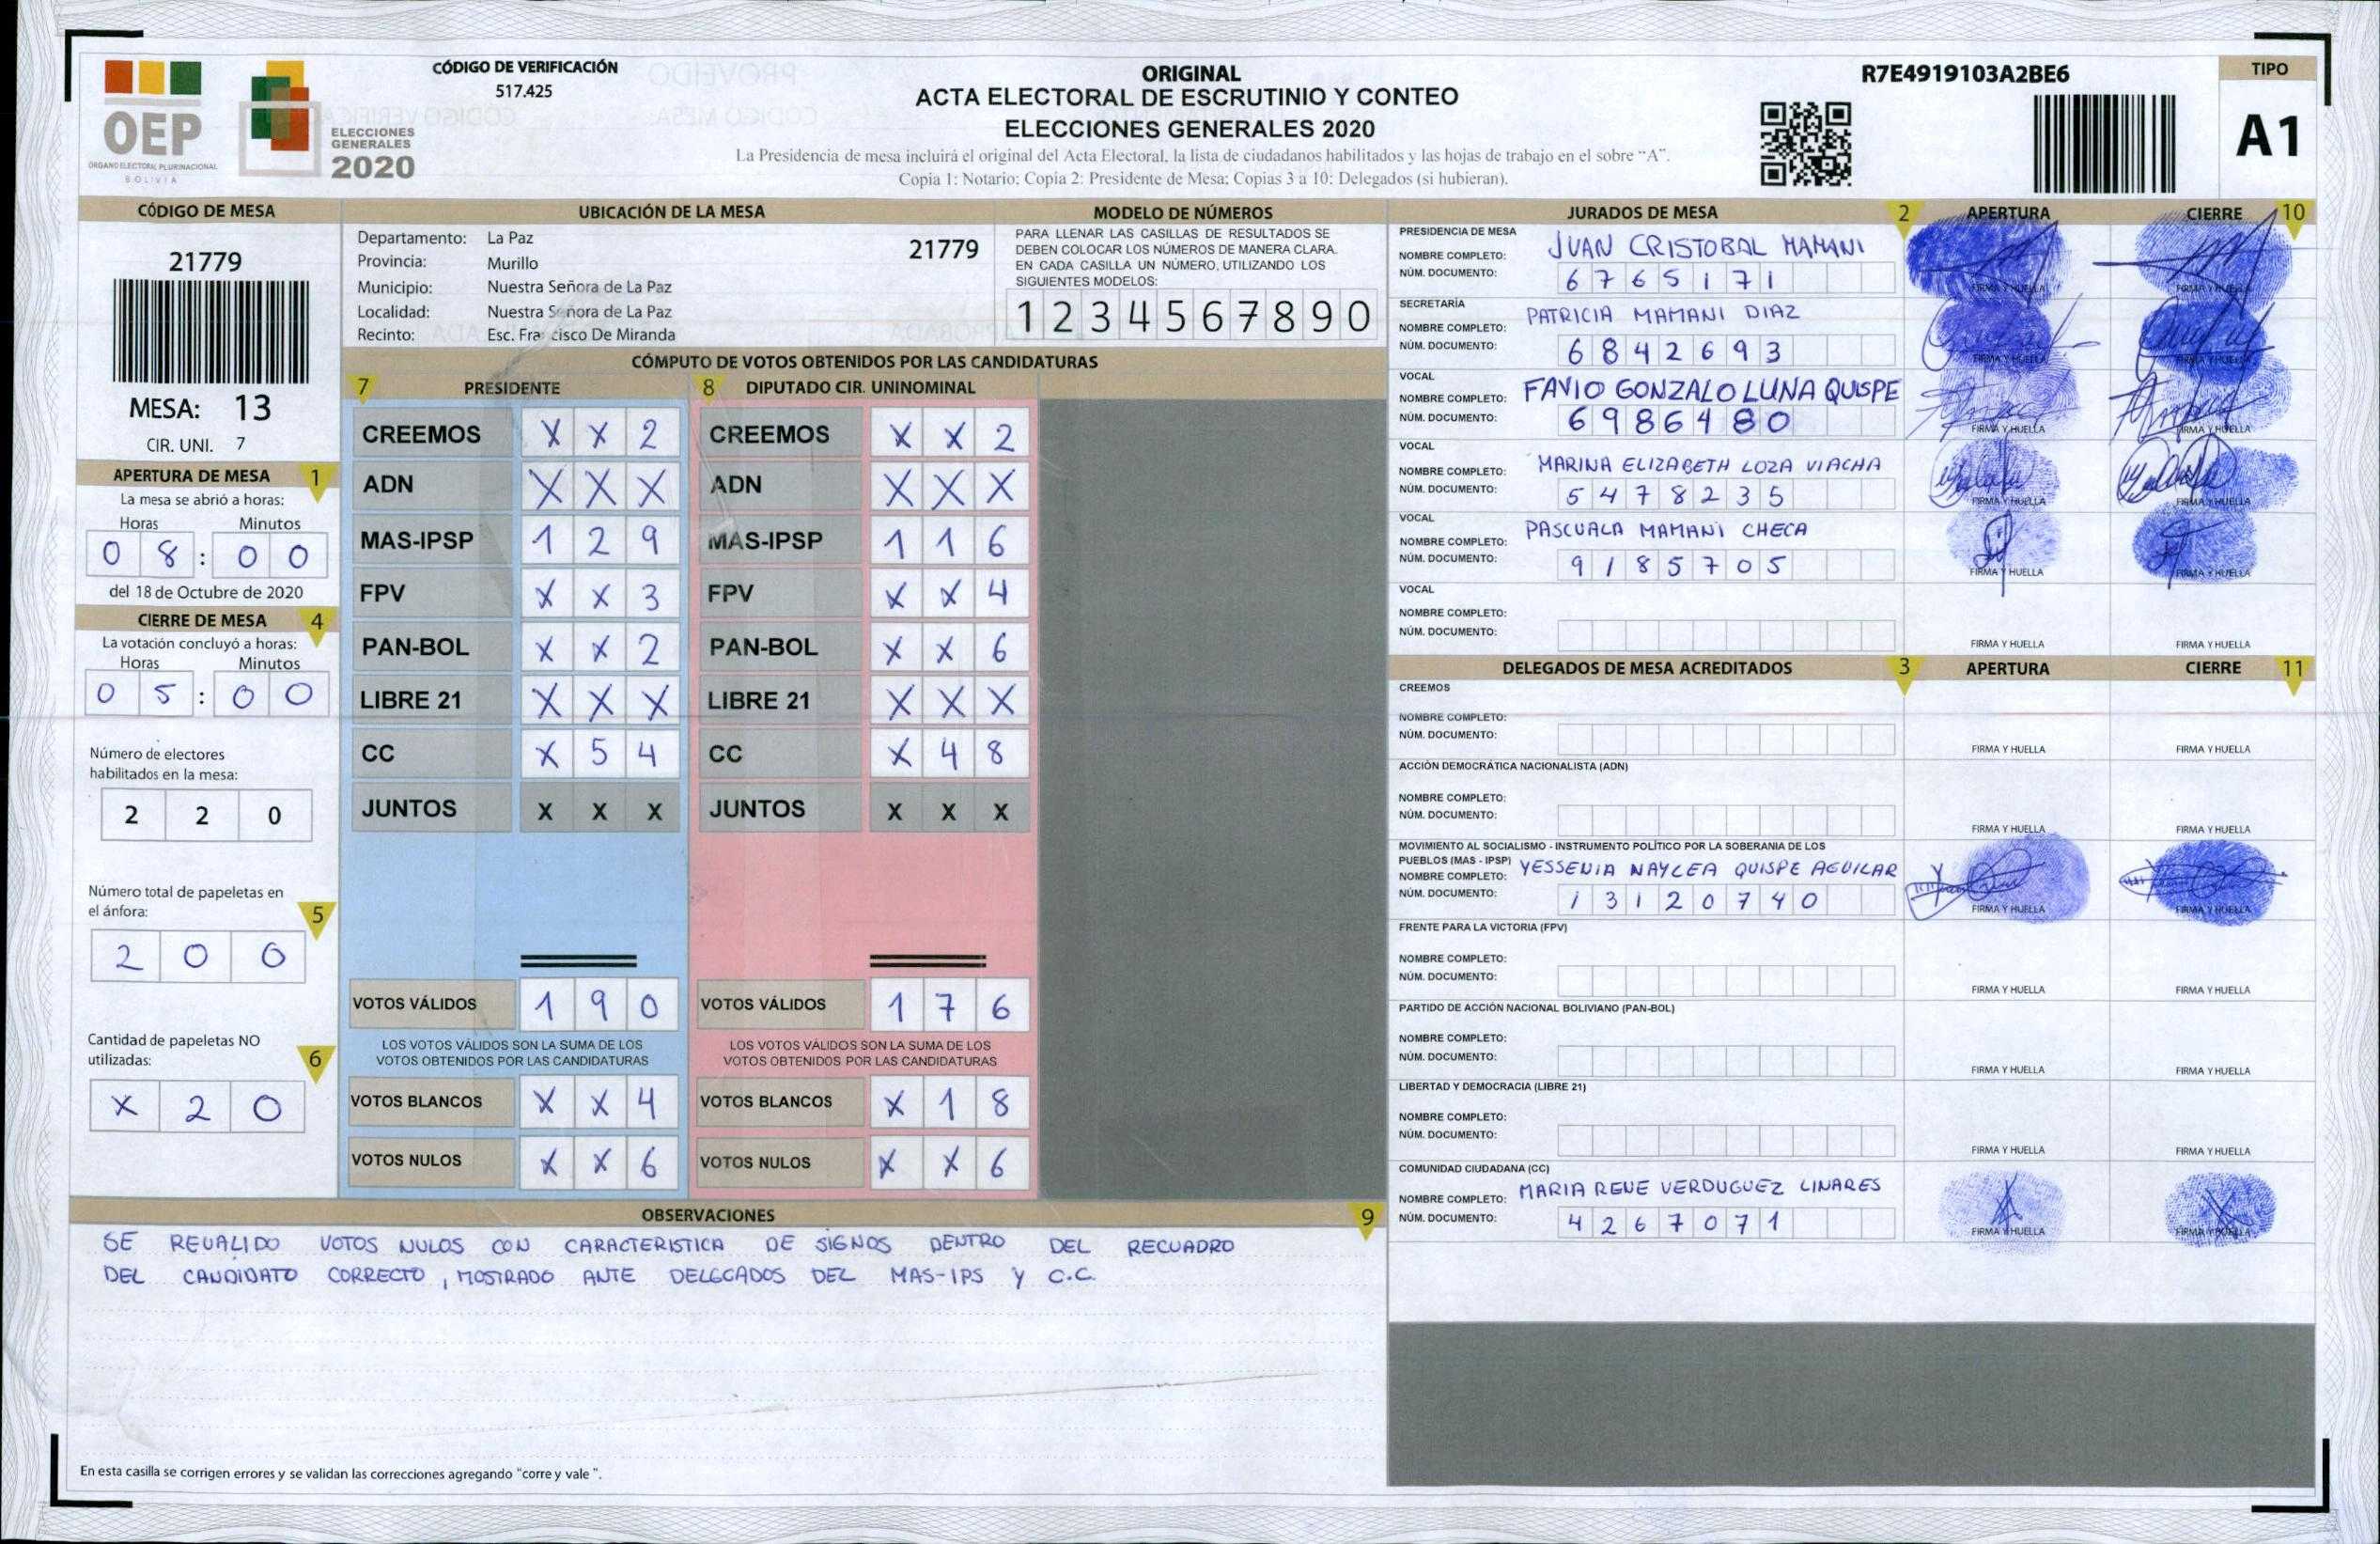 OEP
ÓRGANO ELECTORAL PLURINACIONAL
BOLIVIA
ELECCIONES
GENERALES
2020
CÓDIGO DE VERIFICACIÓN
517.425
ORIGINAL
ACTA ELECTORAL DE ESCRUTINIO Y CONTEO
ELECCIONES GENERALES 2020
La Presidencia de mesa incluirá el original del Acta Electoral, la lista de ciudadanos habilitados y las hojas de trabajo en el sobre "A".
Copia 1: Notario; Copia 2: Presidente de Mesa; Copias 3 a 10: Delegados (si hubieran).
R7E4919103A2BE6
TIPO
A1
CÓDIGO DE MESA
21779
MESA: 13
CIR. UNI. 7
APERTURA DE MESA 1
La mesa se abrió a horas:
Horas Minutos
0 8 : 0 0
del 18 de Octubre de 2020
CIERRE DE MESA 4
La votación concluyó a horas:
Horas Minutos
0 5 : 0 0
Número de electores
habilitados en la mesa:
2 2 0
Número total de papeletas en
el ánfora: 5
2 0 0
Cantidad de papeletas NO
utilizadas: 6
X 2 0
UBICACIÓN DE LA MESA
Departamento: La Paz 21779
Provincia: Murillo
Municipio: Nuestra Señora de La Paz
Localidad: Nuestra Señora de La Paz
Recinto: Esc. Francisco De Miranda
MODELO DE NÚMEROS
PARA LLENAR LAS CASILLAS DE RESULTADOS SE
DEBEN COLOCAR LOS NÚMEROS DE MANERA CLARA.
EN CADA CASILLA UN NÚMERO, UTILIZANDO LOS
SIGUIENTES MODELOS:
1 2 3 4 5 6 7 8 9 0
CÓMPUTO DE VOTOS OBTENIDOS POR LAS CANDIDATURAS
7 PRESIDENTE 8 DIPUTADO CIR. UNINOMINAL
CREEMOS X X 2 CREEMOS X X 2
ADN X X X ADN X X X
MAS-IPSP 1 2 9 MAS-IPSP 1 1 6
FPV X X 3 FPV X X 4
PAN-BOL X X 2 PAN-BOL X X 6
LIBRE 21 X X X LIBRE 21 X X X
CC X 5 4 CC X 4 8
JUNTOS X X X JUNTOS X X X
VOTOS VÁLIDOS 1 9 0 VOTOS VÁLIDOS 1 7 6
LOS VOTOS VÁLIDOS SON LA SUMA DE LOS LOS VOTOS VÁLIDOS SON LA SUMA DE LOS
VOTOS OBTENIDOS POR LAS CANDIDATURAS VOTOS OBTENIDOS POR LAS CANDIDATURAS
VOTOS BLANCOS X X 4 VOTOS BLANCOS X 1 8
VOTOS NULOS X X 6 VOTOS NULOS X X 6
OBSERVACIONES 9
SE REVALIDO VOTOS NULOS CON CARACTERISTICA DE SIGNOS DENTRO DEL RECUADRO
DEL CANDIDATO CORRECTO, MOSTRADO ANTE DELEGADOS DEL MAS-IPS Y C.C.
En esta casilla se corrigen errores y se validan las correcciones agregando "corre y vale".
JURADOS DE MESA 2 APERTURA CIERRE 10
PRESIDENCIA DE MESA
NOMBRE COMPLETO: JUAN CRISTOBAL MAMANI
NÚM. DOCUMENTO: 6 7 6 5 1 7 1 FIRMA Y HUELLA FIRMA Y HUELLA
SECRETARÍA
NOMBRE COMPLETO: PATRICIA MAMANI DIAZ
NÚM. DOCUMENTO: 6 8 4 2 6 9 3 FIRMA Y HUELLA FIRMA Y HUELLA
VOCAL
NOMBRE COMPLETO: FAVIO GONZALO LUNA QUISPE
NÚM. DOCUMENTO: 6 9 8 6 4 8 0 FIRMA Y HUELLA FIRMA Y HUELLA
VOCAL
NOMBRE COMPLETO: MARINA ELIZABETH LOZA VIACHA
NÚM. DOCUMENTO: 5 4 7 8 2 3 5 FIRMA Y HUELLA FIRMA Y HUELLA
VOCAL
NOMBRE COMPLETO: PASCUALA MAMANI CHECA
NÚM. DOCUMENTO: 9 1 8 5 7 0 5 FIRMA Y HUELLA FIRMA Y HUELLA
VOCAL
NOMBRE COMPLETO:
NÚM. DOCUMENTO: FIRMA Y HUELLA FIRMA Y HUELLA
DELEGADOS DE MESA ACREDITADOS 3 APERTURA CIERRE 11
CREEMOS
NOMBRE COMPLETO:
NÚM. DOCUMENTO: FIRMA Y HUELLA FIRMA Y HUELLA
ACCIÓN DEMOCRÁTICA NACIONALISTA (ADN)
NOMBRE COMPLETO:
NÚM. DOCUMENTO: FIRMA Y HUELLA FIRMA Y HUELLA
MOVIMIENTO AL SOCIALISMO - INSTRUMENTO POLÍTICO POR LA SOBERANIA DE LOS
PUEBLOS (MAS - IPSP)
NOMBRE COMPLETO: YESSENIA NAYLEA QUISPE AGUILAR
NÚM. DOCUMENTO: 1 3 1 2 0 7 4 0 FIRMA Y HUELLA FIRMA Y HUELLA
FRENTE PARA LA VICTORIA (FPV)
NOMBRE COMPLETO:
NÚM. DOCUMENTO: FIRMA Y HUELLA FIRMA Y HUELLA
PARTIDO DE ACCIÓN NACIONAL BOLIVIANO (PAN-BOL)
NOMBRE COMPLETO:
NÚM. DOCUMENTO: FIRMA Y HUELLA FIRMA Y HUELLA
LIBERTAD Y DEMOCRACIA (LIBRE 21)
NOMBRE COMPLETO:
NÚM. DOCUMENTO: FIRMA Y HUELLA FIRMA Y HUELLA
COMUNIDAD CIUDADANA (CC)
NOMBRE COMPLETO: MARIA RENE VERDUGUEZ LINARES
NÚM. DOCUMENTO: 4 2 6 7 0 7 1 FIRMA Y HUELLA FIRMA Y HUELLA